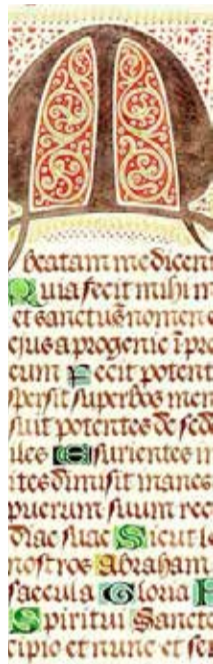 M
beatam me dicent
Quia fecit mihi m
et sanctuᷤ nomen e
ejus a progenie ī pro
eum Fecit potent
spersit superbos men
suit potentes de sed
iles Esurientes i
ites dimisit inanes
puerum suum rec
diae suae Sicut lo
nostros Abraham
saecula Gloria P
Spiritui Sancto
cipio et nunc et sem